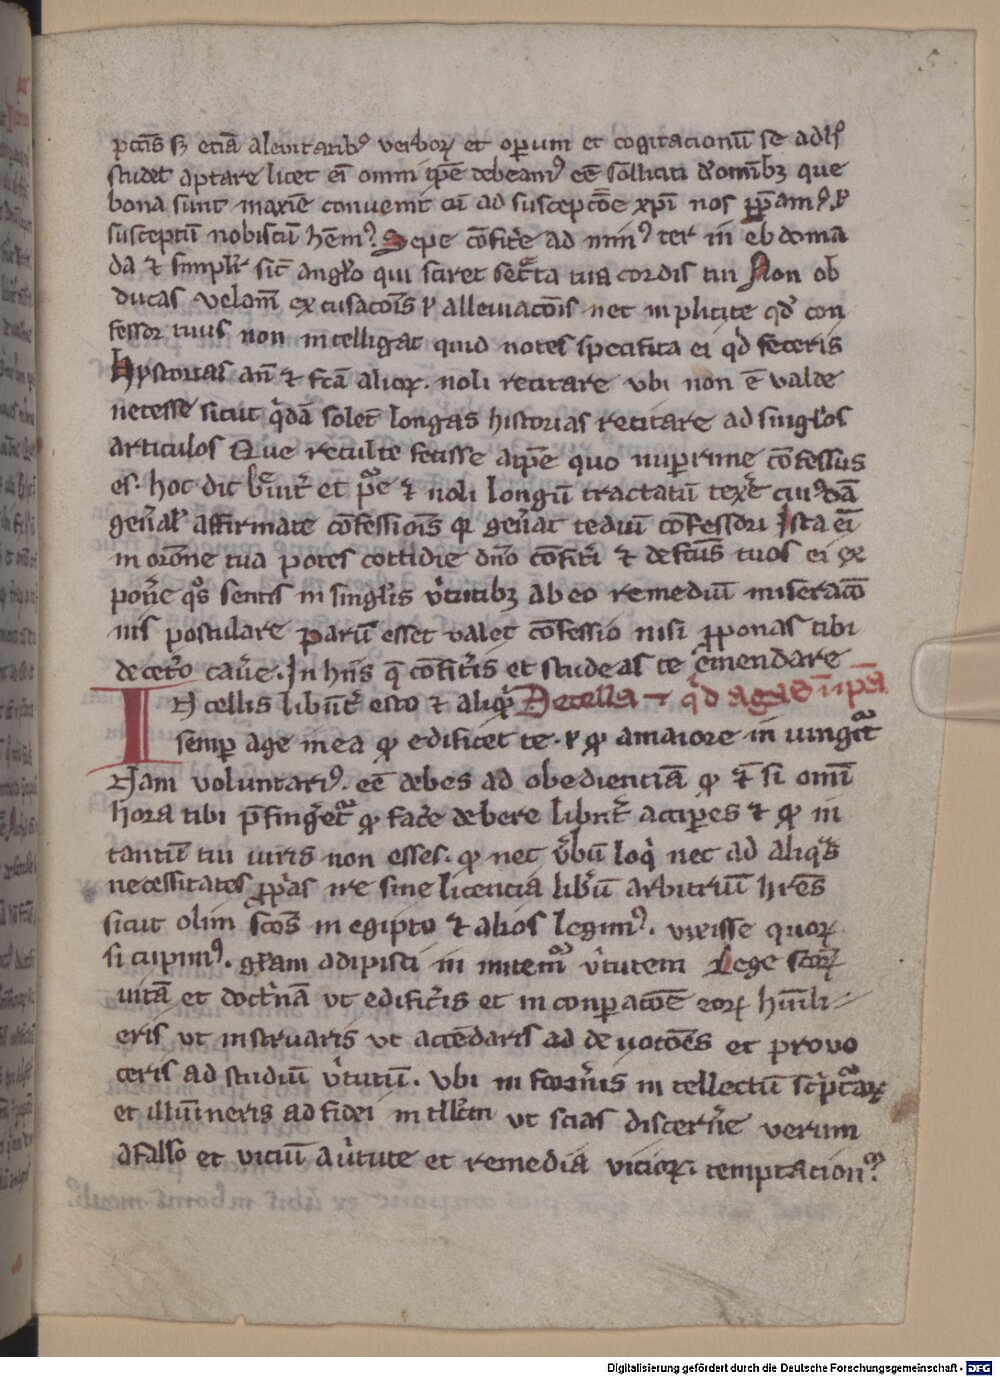 5
pctīs sꝫ etiā alevitatibꝰ verboꝝ et oꝑum et cogitacionū se
studet aptare licet eī omni tp̄e debeamꝰ eē solliciti ⁊ omībꝫ que
bona sunt maxīe convenit cū ad susceptōeꝫ xp̄i nos p̄ꝑamꝰ ⁊
susceptū nobiscū hēmꝰ. Sepe cōfitẽ ad minꝰ ter in ebdoma
da ⁊ simplr̄ sic̄ anglo qui sciret sec̄ta tua cordis tui Non ob
ducas velam̄ excusacōis ⁊ alleviacōis nec inplicite qđ con
fessor tuus non intelligat quid notes specifica ei qđ feceris
hystorias an̄ ⁊ fc̄a alioꝝ. noli recitare ubi non ē valde
necesse sicut q̄dā solēt longas historias recitare ad singlos
articulos Que recul̄te fecisse atp̄e quo nuꝑrime cōfessus
es. hoc dic brīt̄ et ⁊ noli longū tractatū texe cuiꝰdā
gen̄al̄ affirmate cōfessiois ꝙ gen̄at tediū cōfessori Ista eī
in orōne tua potes cottidie dn̄o cōfit̄i ⁊ defc̄us tuos ei ex
pon̄e qͦs sentis in singlis v̄tutibꝫ ab eo remediū miseracō
nis postulare parū esset valet cōfessio nisi ꝓponas tibi
decet̄o cav̄e. In hiis q̄ cōfit̄is et studeas te emendare
In cellis libēt̄ esto ⁊ aliqͥd De cella ⁊ qͥd agas in ip̄a
semꝑ age in ea ꝙ edificet te. ⁊ ꝙ amaiore in iungit̄
Nam voluntariꝰ. eē debes ad obedienciā ꝙ ⁊ si omī
hora tibi p̄fingēt̄ ꝙ fac̄e debere libnt̄ acciꝑes ⁊ ꝙ in
tantū tui iuris non esses. ꝙ nec v̄bū loqͥ nec ad aliqͣs
necessitates ꝓprͥas ire sine licencia libū arbitriū hr̄es
sicut olim sc̄os in egipto ⁊ alios legimꝰ. vixisse quoꝝ
si cupimꝰ. gr̄am adipisci in mitemͬ v̄tutem Lege sc̄oꝝ
uitā et doct̄nā ut edific̄is et in conꝑacōe eoꝝ hūili-
eris ut instruaris ut accēdaris ad deuotōes et provo
ceris ad studiū v̄tutū. ubi in form̄is intellectū sc͛pt̄aꝝ
et illūineris ad fidei intllc̄m ut scias discern̄e verum
afalso et viciū av̄tute et remedia vicioꝝ. temptacionͫ?
Digitalisierung gefördert durch die Deutsche Forschungsgemeinschaft - DFG